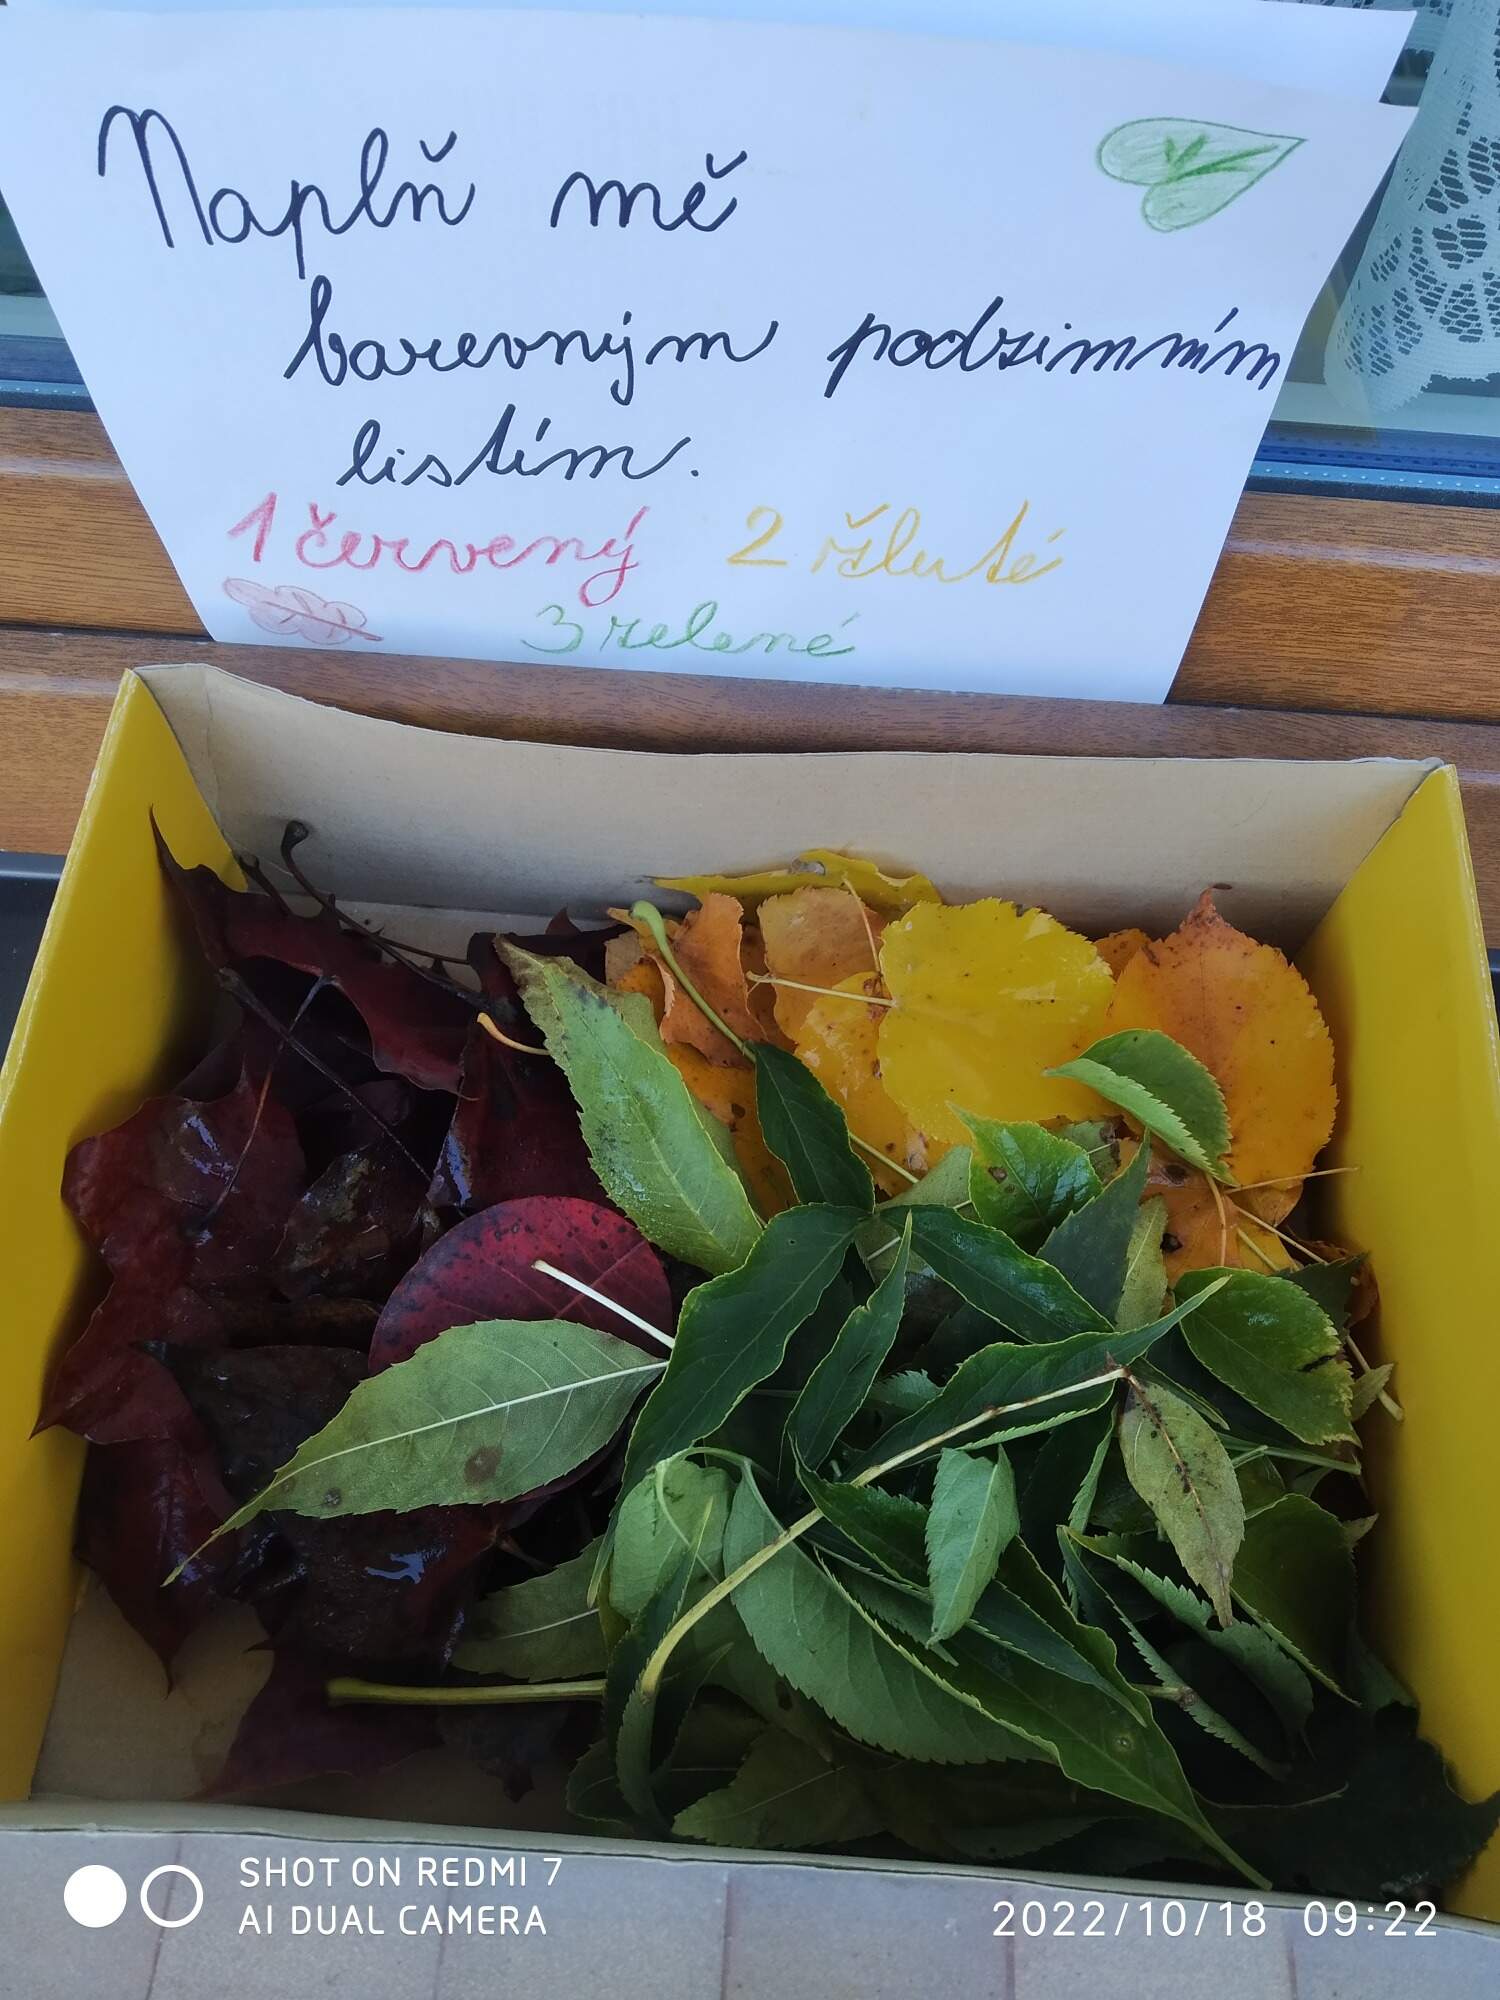 Naplň mě
barevným podzimním
listím.
1 červený 2 žluté
3 zelené
SHOT ON REDMI 7
AI DUAL CAMERA
2022/10/18 09:22